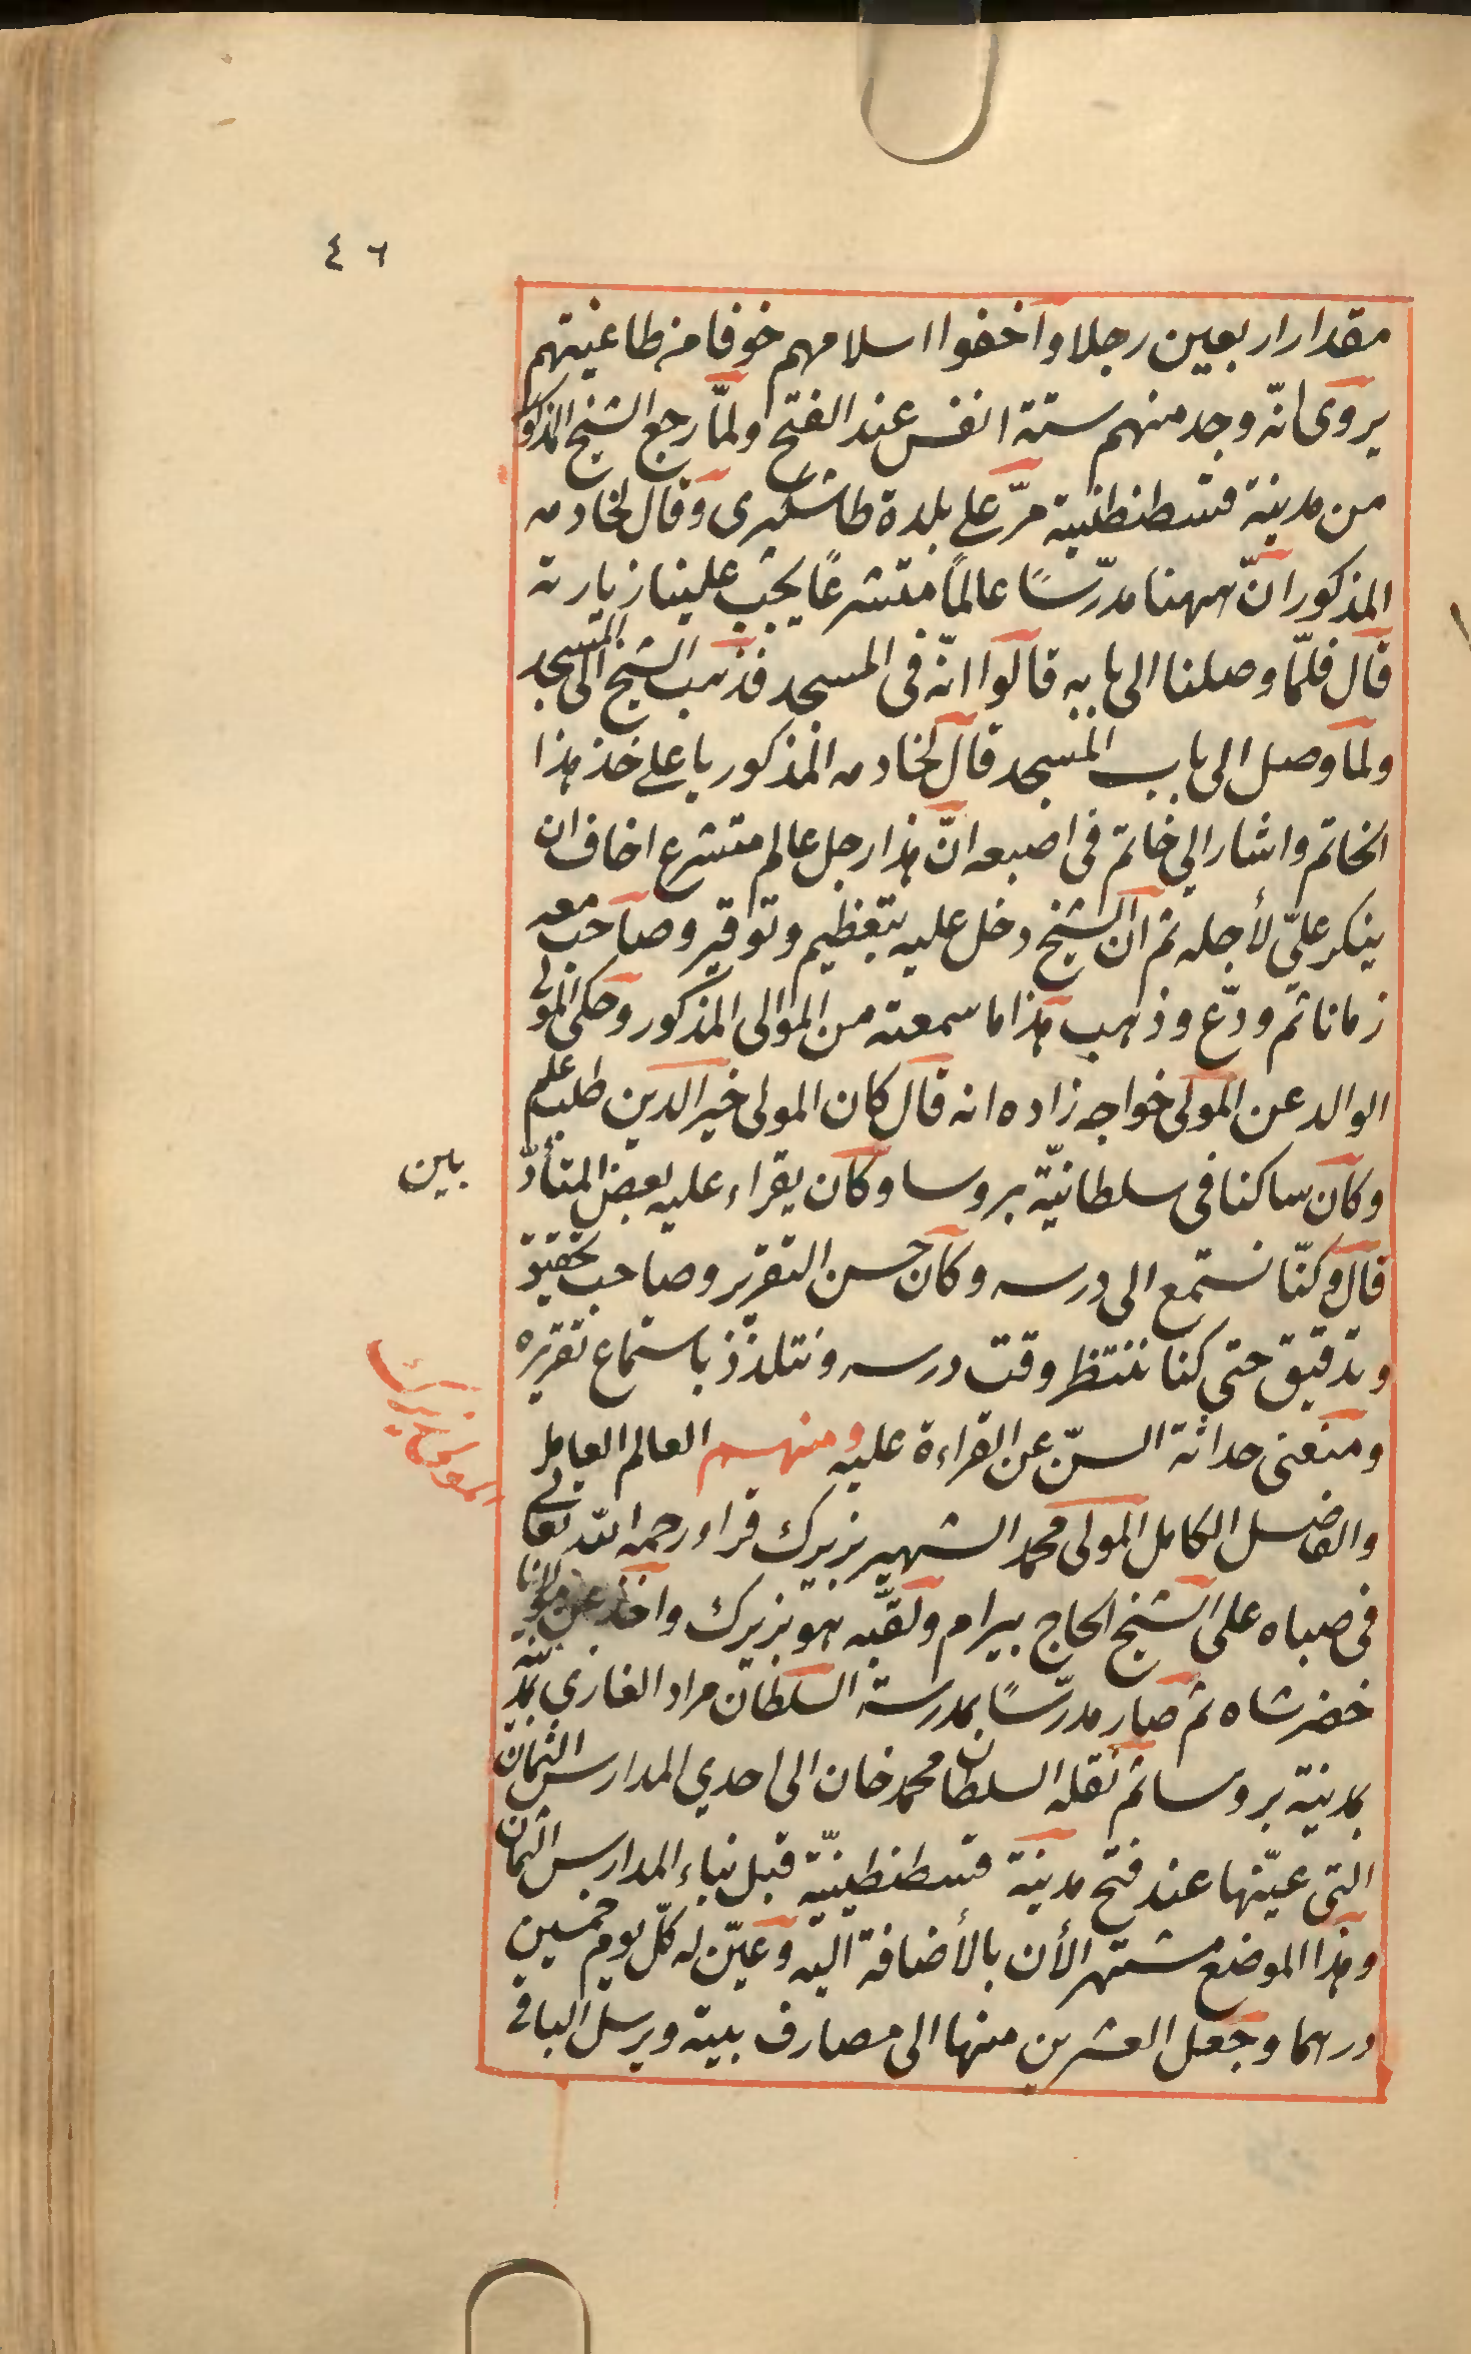 ٤٦
مقدار اربعين رجلا واخفوا اسلامهم خوفا من طاغيتهم
يروى انّه وجد منهم ستة انفس عند الفتح ولمّا رجع الشيخ المذكو
من مدينة قسطنطنية مرّ على بلدة طاشكبرى وقال لخادمه
المذكور انّ ههنا مدرّسًا عالمًا متشرعًا يجب علينا زيارته
قال فلمّا وصلنا الى بابه قالوا انّه فى المسجد فذهب الشيخ الى المسجد
ولما وصل الى باب المسجد قال لخادمه المذكور يا على خذ هذا
الخاتم واشار الى خاتم فى اصبعه انّ هذا رجل عالم متشرع اخاف ان
ينكر علىّ لأجله ثم ان الشيخ دخل عليه بتعظيم وتوقير وصاحب معه
زمانا ثم ودّع وذهب هذا ما سمعته من الموالى المذكور وحكى المولى
الوالد عن المولى خواجه زاده انه قال كان المولى خير الدين طلب علم
وكان ساكنا فى سلطانيّة بروسا وكان يقراء عليه بعض المتأدّ
بين
قال وكنّا نستمع الى درسه وكان حسن التقرير وصاحب تحقيق
وتدقيق حتى كنا ننتظر وقت درسه ونتلذذ باستماع تقريره
ومنعنى حداثة السنّ عن القراءة عليه ومنهم العالم العامل
المولى زيرك
والفاضل الكامل المولى محمد الشهير بزيرك قراء رحمه الله تعالى
فى صباه على الشيخ الحاج بيرام ولقّبه هو بزيرك واخذ عن مولانا
خضرشاه ثم صار مدرّسًا بمدرسة السلطان مراد الغازى
بمدينة بروسا ثم نقله السلطان محمد خان الى احدي المدارس الثمان
التى عيّنها عند فتح مدينة قسطنطينيّة قبل بناء المدارس الثمان
وهذا الموضع مشتهر الأن بالأضافة اليه وعيّن له كلّ يوم خمسين
درهما وجعل العشرين منها الى مصارف بيته ويرسل الباقى